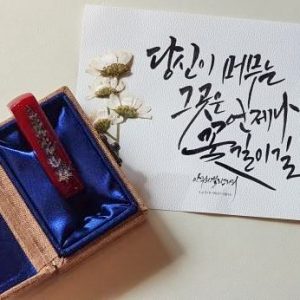 당신이 머무는
그곳은 언제나
꽃길이길